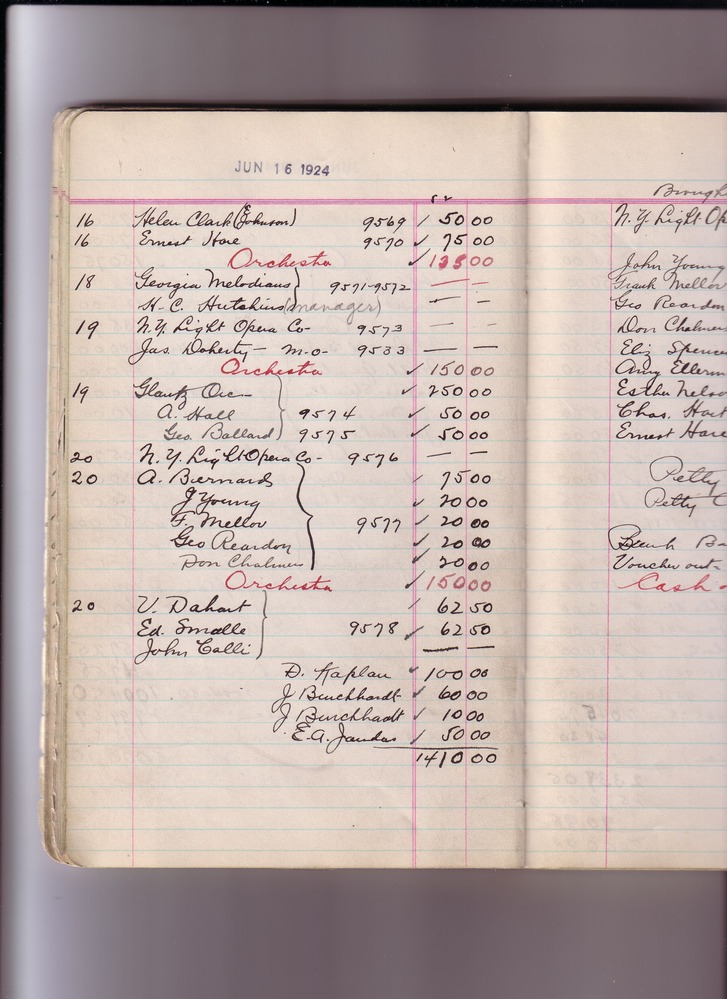 JUN 16 1924
16 Helen Clark (E. Johnson) 9569 ✓ 50 00
16 Ernest Hare 9570 ✓ 75 00
Orchestra ✓ 135 00
18 Georgia Melodians 9571-9572 — —
H. C. Hutchins (manager) — —
19 N.Y. Light Opera Co- 9573 — —
Jas. Doherty — m-o- 9533 — —
Orchestra ✓ 150 00
19 Glantz Orc— ✓ 250 00
A. Hall 9574 ✓ 50 00
Geo. Ballard 9575 ✓ 50 00
20 N.Y. Light Opera Co- 9576 — —
20 A. Bernard ✓ 75 00
J Young ✓ 20 00
F. Mellor 9577 ✓ 20 00
Geo Reardon ✓ 20 00
Don Chalmers ✓ 20 00
Orchestra ✓ 150 00
20 V. Dahart ✓ 62 50
Ed. Smalle 9578 ✓ 62 50
John Calli — —
D. Kaplan ✓ 100 00
J Burckhardt ✓ 60 00
J Burckhardt ✓ 10 00
E.A. Jandas ✓ 50 00
1410 00
Brough
N.Y. Light Op
John Young
Frank Mellor
Geo Reardon
Don Chalmer
Eliz Spence
Amy Ellerm
Esther Nelso
Chas. Hart
Ernest Hare
Petty
Petty C
Bank Ba
Voucher out-
Cash -